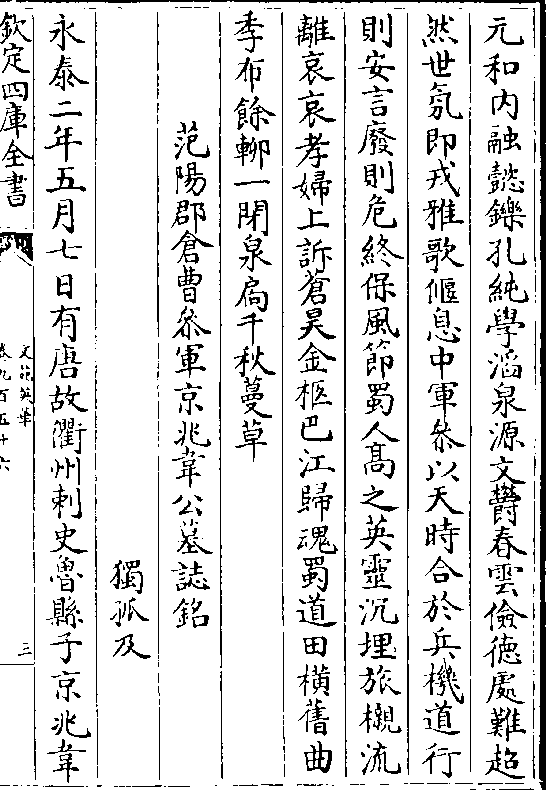 元和内融懿鑠孔純學滔泉源文欝春雲儉德處難超
然世氛即戎雅歌偃息中軍叅以天時合於兵機道行
則安言廢則危終保風節蜀人髙之英靈沉埋旅櫬流
離哀哀孝婦上訴蒼昊金柩巴江歸魂蜀道田橫舊曲
季布餘輀一閉泉扃千秋蔓草
范陽郡倉曹叅軍京兆韋公墓誌銘
獨孤及
永泰二年五月七日有唐故衢州刺史魯縣子京兆韋
欽定四庫全書
文苑英華
卷九百五十六
三